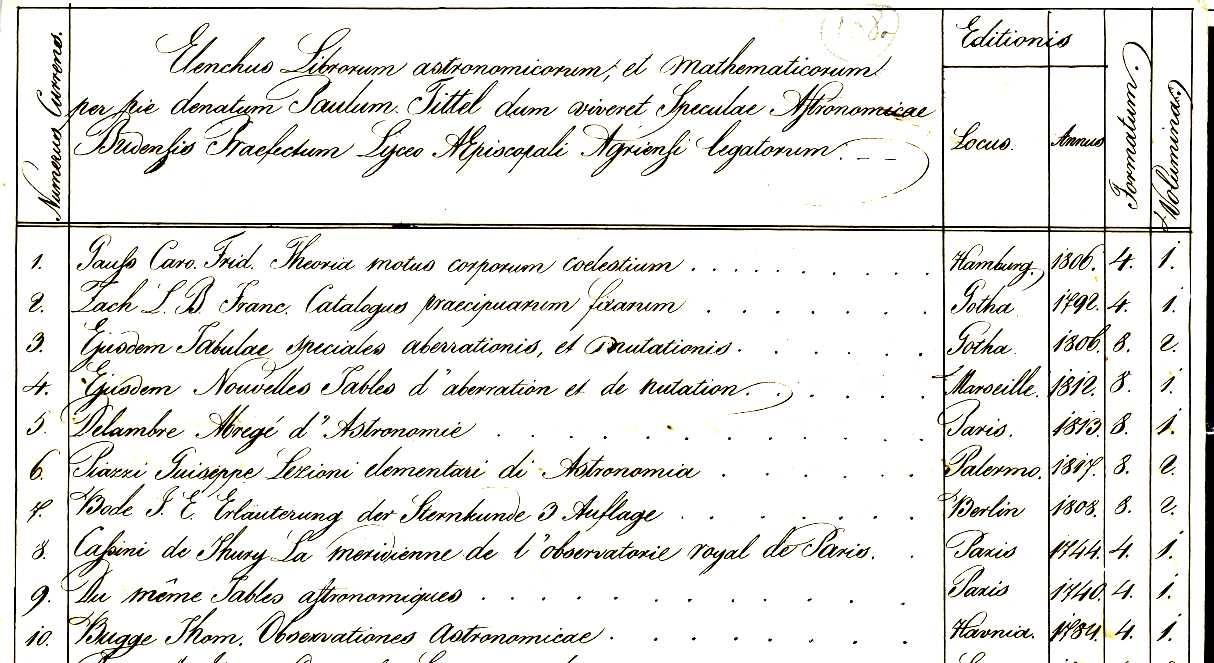 Numerus Currens.
Elenchus Librorum astronomicorum, et mathematicorum
per pie denatum Paulum Tittel dum viveret Speculae Astronomicae
Budensis Praefectum Lyceo AEpiscopali Agriensi legatorum.
Editionis
Locus. Annus
Formatum.
Volumina.
1. Gauss Caro. Frid. Theoria motus corporum coelestium . . . . . . . Hamburg. 1806. 4. 1.
2. Zach L. B. Franc. Catalogus praecipuarum fixarum . . . . . . . Gotha 1792. 4. 1.
3. Ejusdem Tabulae speciales aberrationis, et nutationis . . . . . . Gotha 1806. 8. 2.
4. Ejusdem Nouvelles Tables d'aberration et de nutation . . . . . Marseille. 1812. 8. 1.
5. Delambre Abregé d'Astronomie . . . . . . . . . . . Paris. 1813. 8. 1.
6. Piazzi Guiseppe Lezioni elementari di Astronomia . . . . . . Palermo. 1817. 8. 2.
7. Bode I. E. Erläuterung der Sternkunde 3 Auflage . . . . . . . Berlin 1808. 8. 2.
8. Cassini de Thury La meridienne de l'observatorie royal de Paris. . Paris 1744. 4. 1.
9. Du même Tables astronomiques . . . . . . . . . . . . Paris 1740. 4. 1.
10. Bugge Thom. Observationes Astronomicae . . . . . . . . . Havnia. 1784. 4. 1.